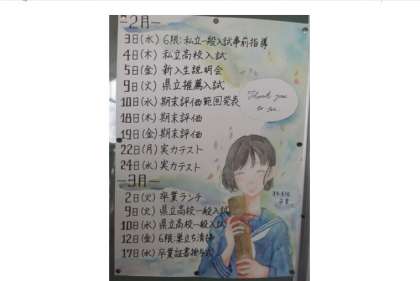 2月
3日(水) 6限:私立一般入試事前指導
4日(木) 私立高校入試
5日(金) 新入生説明会
9日(火) 県立推薦入試
10日(水) 期末評価範囲発表
18日(木) 期末評価
19日(金) 期末評価
22日(月) 実力テスト
24日(水) 実力テスト
3月
2日(火) 卒業ランチ
9日(火) 県立高校一般入試
10日(水) 県立高校一般入試
12日(金) 6限:巣立ち清掃
17日(水) 卒業証書授与式
Thank you